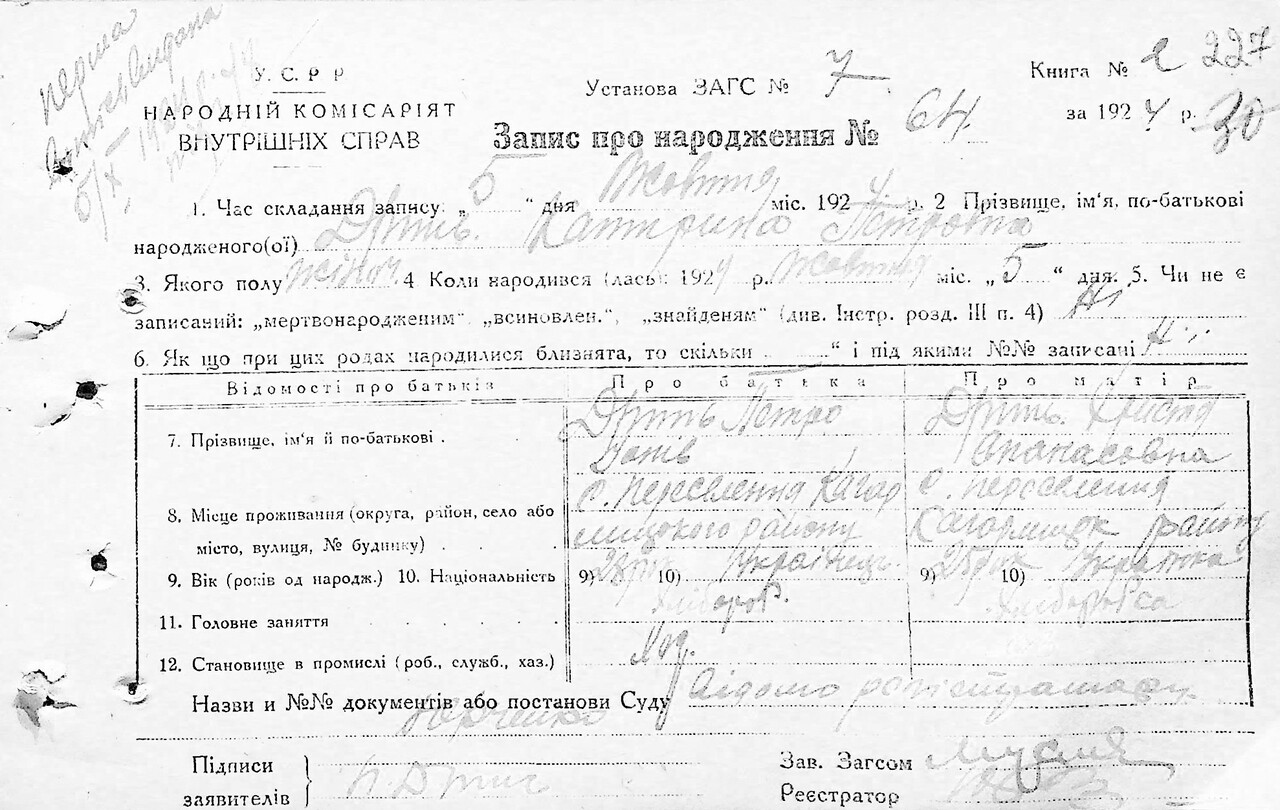 У. С. Р Р
НАРОДНІЙ КОМІСАРІЯТ
ВНУТРІШНІХ СПРАВ
Установа ЗАГС № 7
Книга № 2 227
за 1924 р. 30
Запис про народження № 64.
1. Час складання запису: „ 5 “ дня Жовтня міс. 1924 р. 2 Прізвище, ім'я, по-батькові
народженого(ої) Дриль. Катирина Петровна
3. Якого полу жіноч. 4 Коли народився (лась): 1924 р. Жовтня міс. „ 5 “ дня. 5. Чи не є
записаний: „мертвонародженим“ „всиновлен.“, „знайденям“ (див. Інстр. розд. III п. 4) Ні
6. Як що при цих родах народилися близнята, то скільки „ “ і під якими №№ записані Ні
Відомості про батьків Про батька Про матір
7. Прізвище, ім'я й по-батькові . Дриль Петро Дриль. Христя
Апанасовна
с. Переселення Кагар с. Переселення
8. Місце проживання (округа, район, село або
лицького району Кагарлицьк району
місто, вулиця, № будинку) . . .
9. Вік (років од народж.) 10. Національність 9) 28 рік 10) Українець 9) 25 рік 10) Українка
Хлібороб.
11. Головне заняття . . . . .
12. Становище в промислі (роб., служб., хаз.)
Назви и №№ документів або постанови Суду Відомо
Підписи
заявителів
Зав. Загсом
Реєстратор